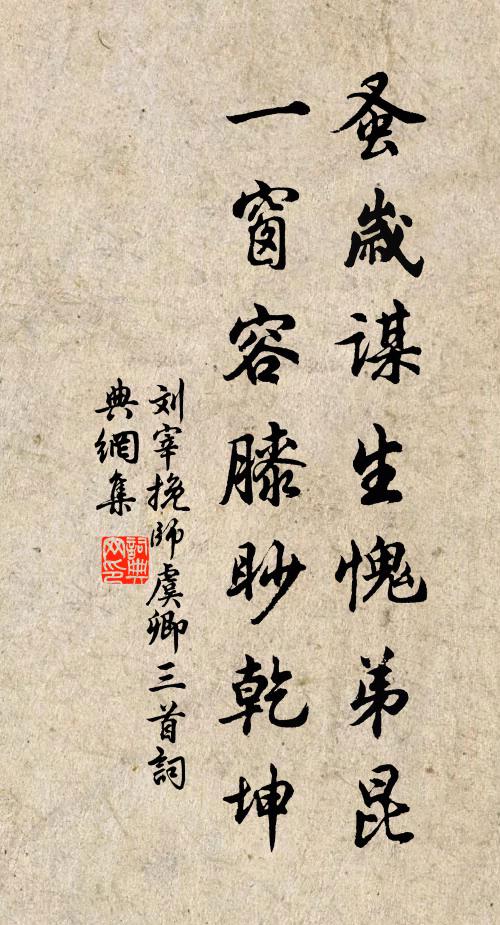 蚤歲謀生愧弟昆
一窗容膝眇乾坤
刘宰挽師虞卿三首詞
典網集
詞典网印